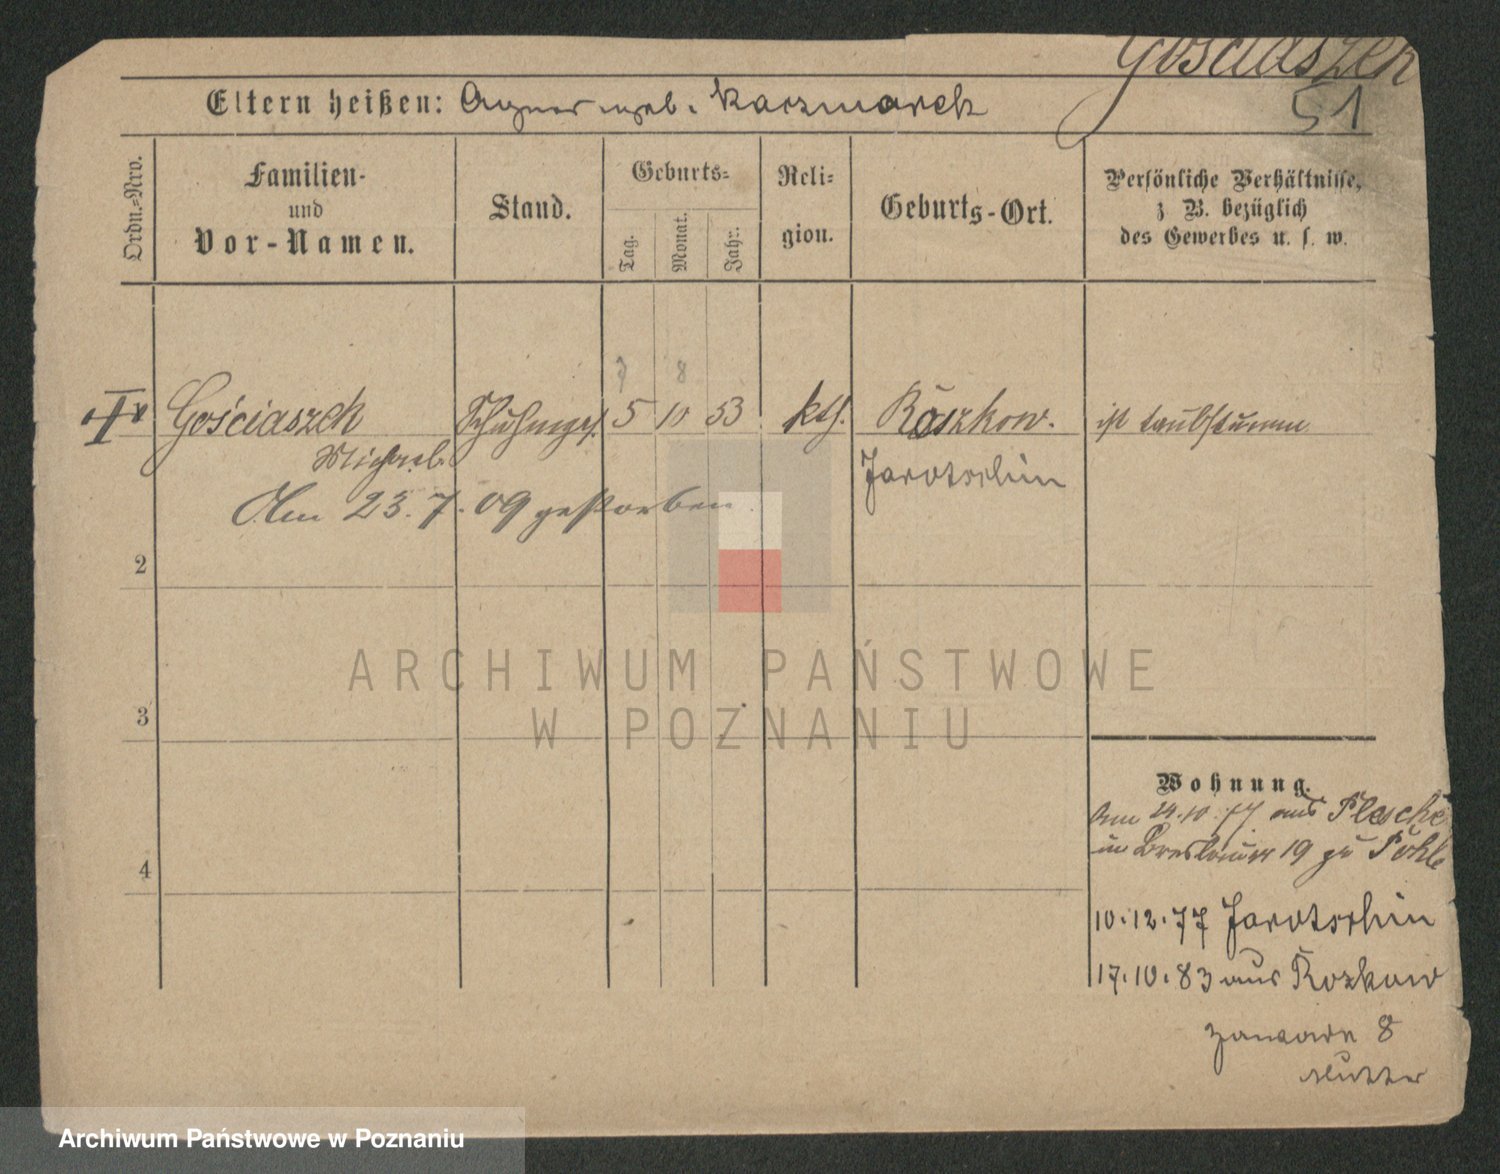 Gościaszek
51
Eltern heißen: Agnes geb. Karzmarek
Ordn.-Nro.
Familien-
und
Vor-Namen.
Stand.
Geburts-
Tag.
Monat.
Jahr.
Reli-
gion.
Geburts-Ort.
Persönliche Verhältnisse,
z B. bezüglich
des Gewerbes u. s. w.
7 8
Gościaszek Schuhmges. 5 10 53 kth. Roszkow. ist taubstumm
Michael Jarotschin
Am 23.7.09 gestorben.
2
3
4
ARCHIWUM PAŃSTWOWE
W POZNANIU
Wohnung.
Am 24.10.77 aus Plesche
in Breslauer 19 zu Pohle
10.12.77 Jarotschin
17.10.83 aus Rozkow
8
Mutter
Archiwum Państwowe w Poznaniu